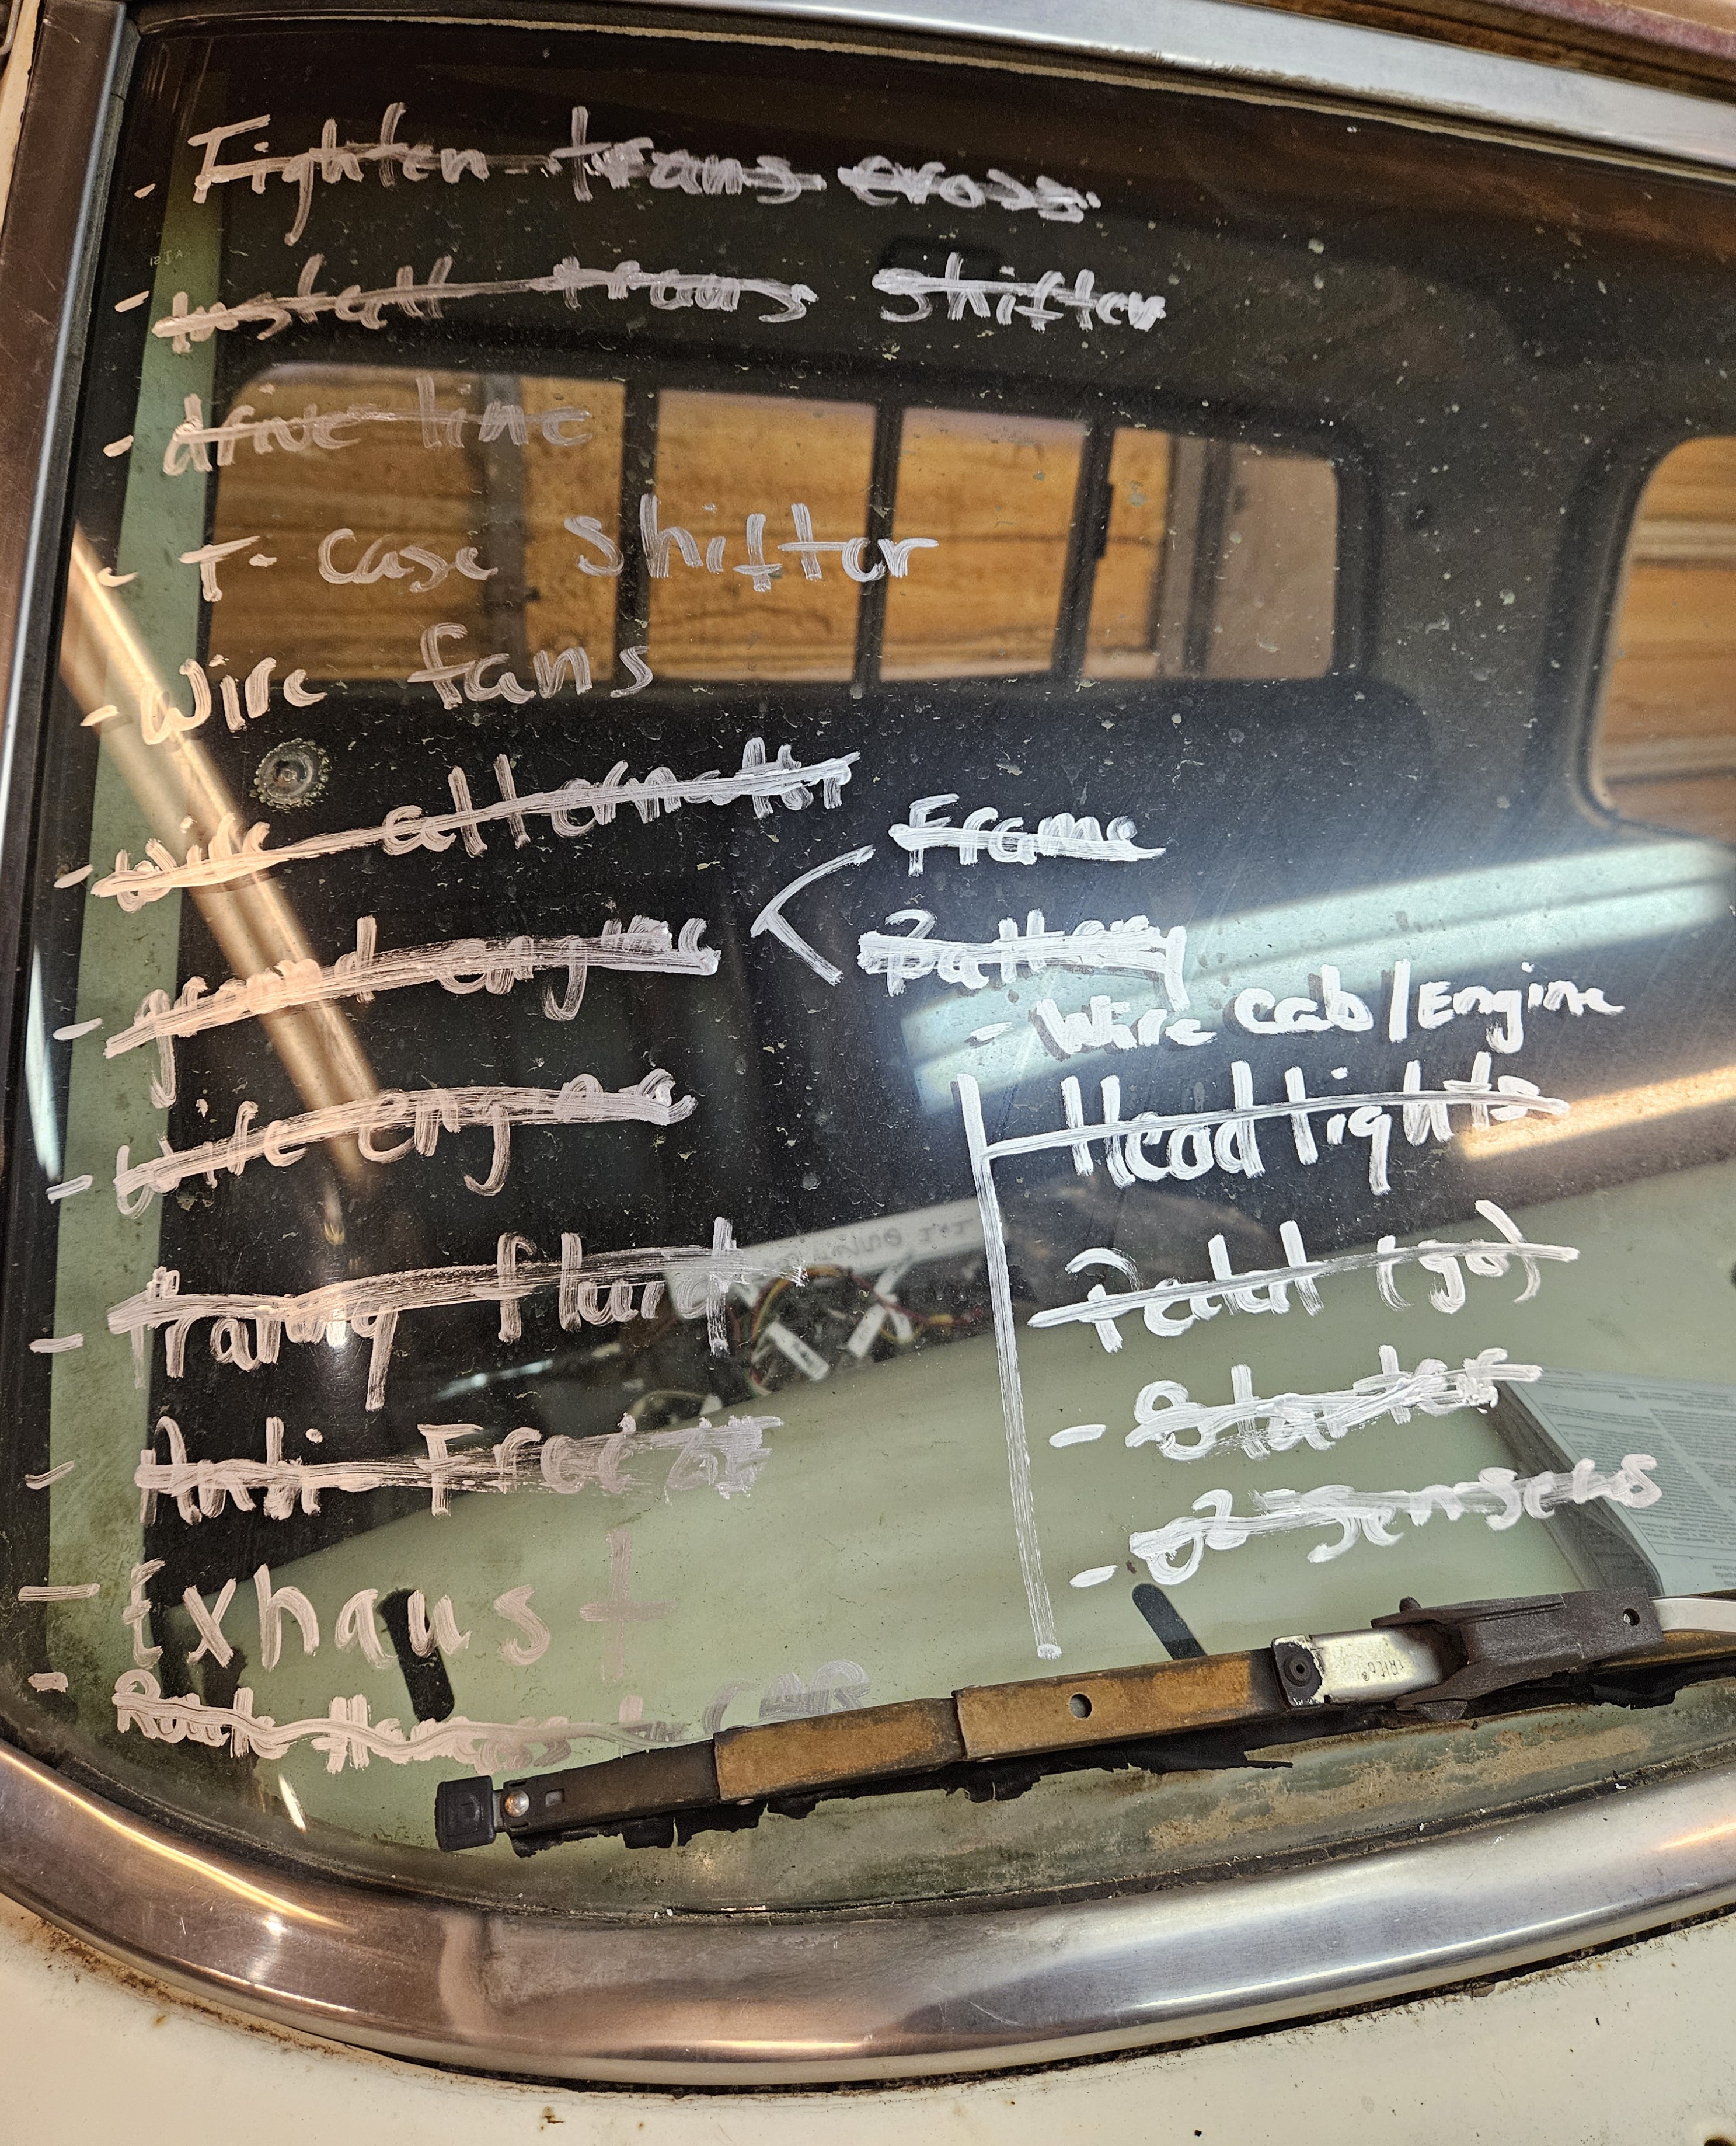 - Tighten trans cross
- Install trans shifter
- drive line
- T- case shifter
- Wire fans
- Wire alternator
- ground engine < Frame
Battery
- Wire engine
- Trany fluid
- Anti-Freeze
- Exhaust
- Route Harness in CAB
- Wire cab/Engine
Head lights
Pedal (go)
- Starter
- O2 Sensors